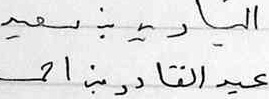 بن سعيد
عبد القادر بن احمد